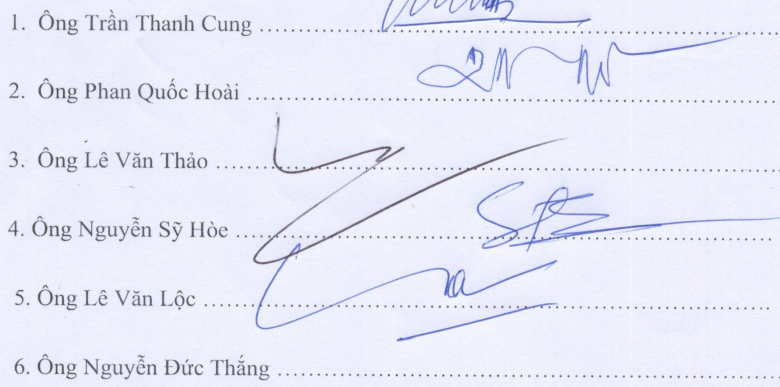 1. Ông Trần Thanh Cung ........................................................
2. Ông Phan Quốc Hoài ........................................................
3. Ông Lê Văn Thảo ........................................................
4. Ông Nguyễn Sỹ Hòe ........................................................
5. Ông Lê Văn Lộc ........................................................
6. Ông Nguyễn Đức Thắng ........................................................